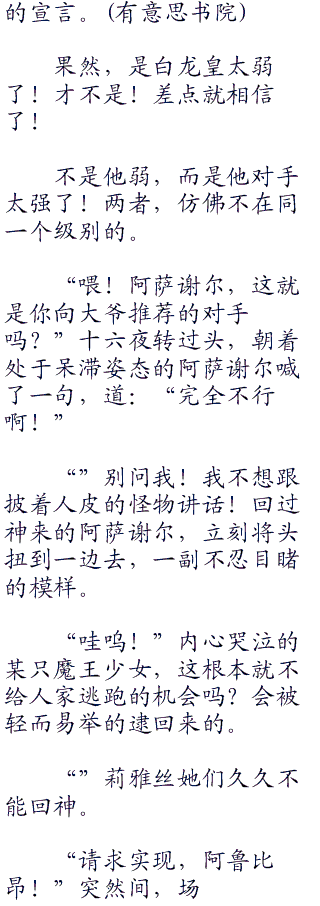 的宣言。(有意思书院)
果然，是白龙皇太弱
了！才不是！差点就相信
了！
不是他弱，而是他对手
太强了！两者，仿佛不在同
一个级别的。
“喂！阿萨谢尔，这就
是你向大爷推荐的对手
吗？”十六夜转过头，朝着
处于呆滞姿态的阿萨谢尔喊
了一句，道：“完全不行
啊！”
“”别问我！我不想跟
披着人皮的怪物讲话！回过
神来的阿萨谢尔，立刻将头
扭到一边去，一副不忍目睹
的模样。
“哇呜！”内心哭泣的
某只魔王少女，这根本就不
给人家逃跑的机会吗？会被
轻而易举的逮回来的。
“”莉雅丝她们久久不
能回神。
“请求实现，阿鲁比
昂！”突然间，场